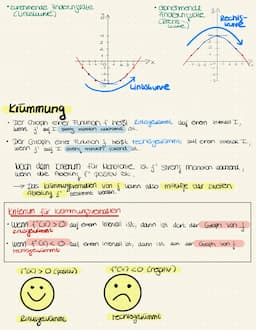 • zunehmende Änderungsrate
(Linkskurve)
• abnehmende
Änderungsrate
(Rechts-
kurve)
Rechts-
kurve
Linkskurve
Krümmung
• Der Graph einer Funktion f heißt linksgekrümmt auf einem Intervall I,
wenn f' auf I streng monoton wachsend ist.
• Der Graph einer Funktion f heißt rechtsgekrümmt auf einem Intervall I,
wenn f' auf I streng monoton fallend ist.
Nach dem Kriterium für Monotonie ist f' streng monoton wachsend,
wenn die Ableitung f'' positiv ist.
→ Das Krümmungsverhalten von f kann also mithilfe der zweiten
Ableitung f'' bestimmt werden.
Kriterium für Krümmungsverhalten
• Wenn f''(x) > 0 auf einem Intervall ist, dann ist dort der Graph von f
linksgekrümmt
• Wenn f''(x) < 0 auf einem Intervall ist, dann ist dort der Graph von f
rechtsgekrümmt
f''(x) > 0 (positiv)
f''(x) < 0 (negativ)
linksgekrümmt
rechtsgekrümmt